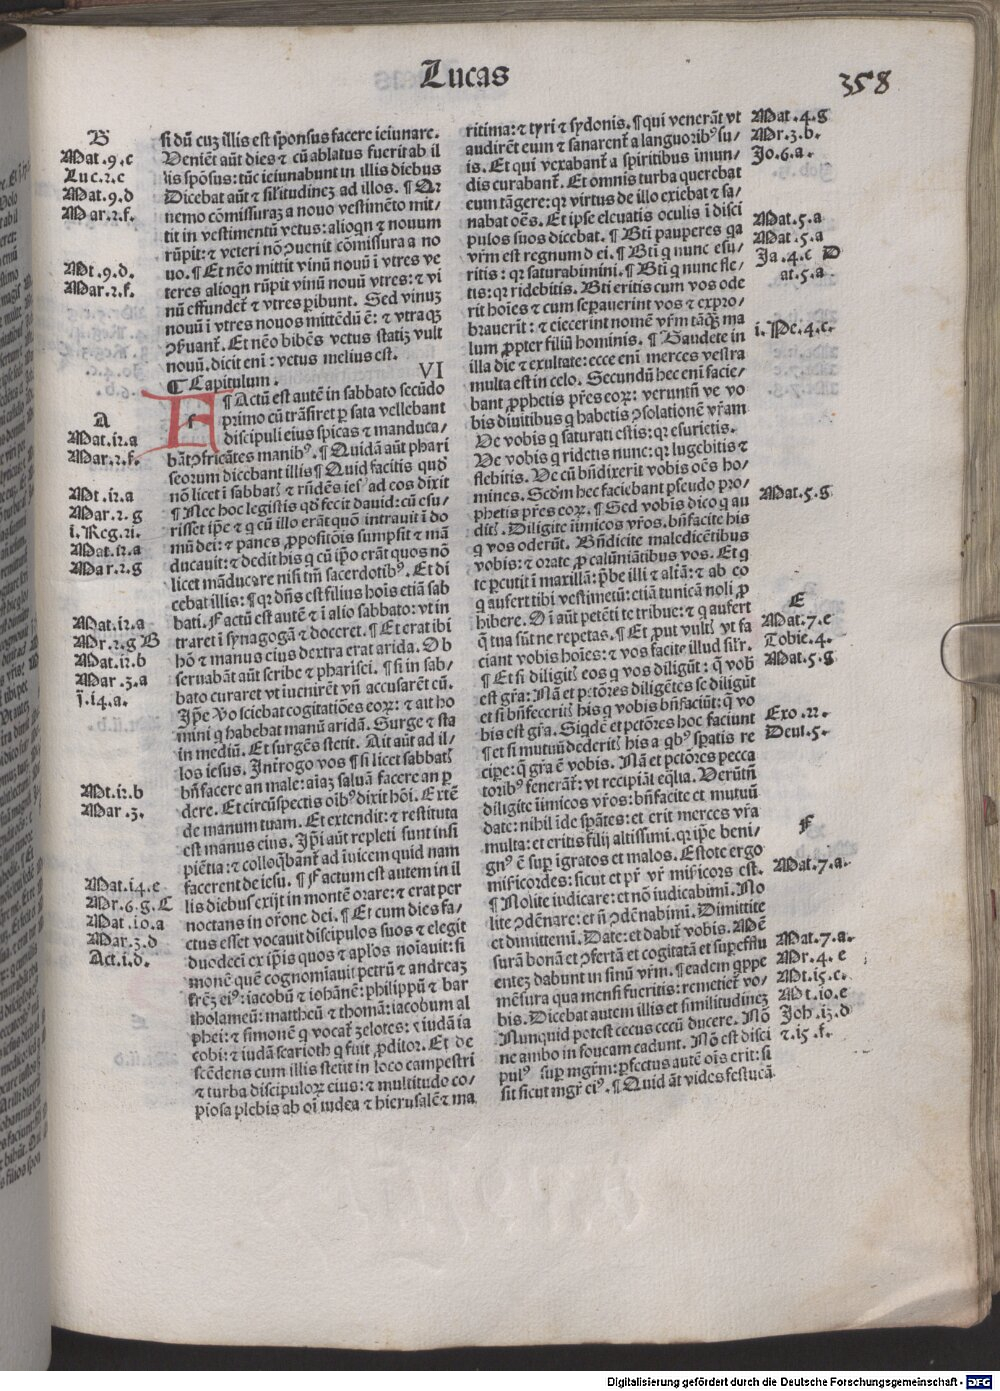 Lucas
358
B
Mat.9.c
Luc.2.c
Mat.9.d
Mar.2.f.
Mt.9.d.
Mar.2.f.
A
Mat.12.a
Mar.2.f.
Mt.12.a
Mar.2.g
i.Reg.21.
Mat.12.a
Mar.2.g
Mat.12.a
Mr.2.g B
Mat.12.b
Mar.3.a
j.14.a.
Mt.12.b
Mar.3.
Mat.14.e
Mr.6.g.C
Mat.10.a
Mar.3.d
Act.1.d.
si dū cuʒ illis est spōnsus facere ieiunare.
Ueniēt aūt dies ⁊ cū ablatus fuerit ab il
lis spōsus: tūc ieiunabunt in illis diebus
Dicebat aūt ⁊ sil'itudineʒ ad illos. ¶ Qꝛ
nemo cōmissuraʒ a nouo vestimēto mit/
tit in vestimentū vetus: alioqn ⁊ nouum
rūpit: ⁊ veteri nō ↄuenit cōmissura a no
uo. ¶ Et nēo mittit vinū nouū ī vtres ve
teres alioqn rūpit vinū nouū vtres: ⁊ vi
nū effundet᷑ ⁊ vtres ꝑibunt. Sed vinuʒ
nouū ī vtres nouos mittēdū ē: ⁊ vtraqʒ
ↄẜuant᷑. Et nēo bibēs vetus statiʒ vult
nouū. dicit eni: vetus melius est.
¶ Capitulum. VI
F ¶ Actū est autē in sabbato secūdo
primo cū trāsiret ꝑ sata vellebant
discipuli eius spicas ⁊ manduca/
bāt ↄfricātes manibꝰ. ¶ Quidā aūt phari
seorum dicebant illis ¶ Quid facitis qud
nō licet ī sabbatꝭ ⁊ rn̄dēs ies' ad eos dixit
¶ Nec hoc legistis qd̄ fecit dauid: cū esu/
risset ip̄e ⁊ q cū illo erāt quō intrauit ī do
mū dei: ⁊ panes ꝓpositōis sumpsit ⁊ mā
ducauit: ⁊ dedit his q cū ip̄o erāt quos nō
licet māducare nisi tm̄ sacerdotibꝰ. Et di
cebat illis: ¶ qꝛ dn̄s est filius hoīs etiā sab
bati. Factū est autē ⁊ ī alio sabbato: vt in
traret ī synagogā ⁊ doceret. ¶ Et erat ibi
hō ⁊ manus eius dextra erat arida. Ob
seruabāt aūt scribe ⁊ pharisei. ¶ si in sab/
bato curaret vt īuenirēt vn̄ accusarēt eū.
Ip̄e ꝟo sciebat cogitatiōes eoꝝ: ⁊ ait ho
mini q habebat manū aridā. Surge ⁊ sta
in mediū. Et surgēs stetit. Ait aūt ad il/
los iesus. Interrogo vos ¶ si licet sabbatꝭ
bn̄ facere an male: aīaʒ saluā facere an ꝑ
dere. Et circūspectis oībꝰ dixit hōi. Extē
de manum tuam. Et extendit: ⁊ restituta
est manus eius. Ip̄i aūt repleti sunt insi
piētia: ⁊ colloq̄bant᷑ ad īuicem quid nam
facerent de iesu. ¶ Factum est autem in il
lis diebus exijt in montē orare: ⁊ erat per
noctans in orōne dei. ¶ Et cum dies fa/
ctus esset vocauit discipulos suos ⁊ elegit
duodecī ex ip̄is quos ⁊ apl̄os noīauit: si
monē quē cognomīauit petrū ⁊ andreaʒ
fr̄eʒ eiꝰ: iacobū ⁊ iohānē: philippū ⁊ bar
tholameū: mattheū ⁊ thomā: iacobum al
phei: ⁊ simonē q vocat᷑ zelotes: ⁊ iudā ia
cobi: ⁊ iudā scarioth q fuit ꝓditor. Et de
scēdens cum illis stetit in loco campestri
⁊ turba discipuloꝝ eius: ⁊ multitudo co/
piosa plebis ab oī iudea ⁊ hierusalē ⁊ ma
ritima: ⁊ tyri ⁊ sydonis. ¶ qui venerāt vt
audirēt eum ⁊ sanarent᷑ a languoribꝰ su/
is. Et qui vexabant᷑ a spiritibus īmun/
dis curabant᷑. Et omnis turba querebat
eum tāgere: qꝛ virtus de illo exiebat ⁊ sa/
nabat oēs. Et ipse eleuatis oculis ī disci
pulos suos dicebat. ¶ Bti pauperes qa
vr̄m est regnum dei. ¶ Bti q nunc esu/
ritis: qꝛ saturabimini. ¶ Bti q nunc fle/
tis: qꝛ ridebitis. Bti eritis cum vos ode
rit hoīes ⁊ cum seꝑauerint vos ⁊ expro/
brauerit: ⁊ eiecerint nomē vr̄m tāqʒ ma
lum ꝓpter filiū hominis. ¶ Gaudete in
illa die ⁊ exultate: ecce eni merces vestra
multa est in celo. Secundū hec eni facie/
bant ꝓphetis pr̄es eoꝝ: verumtn̄ ve vo
bis diuitibus q habetis ↄsolationē vr̄am
Ue vobis q saturati estis: qꝛ esurietis.
Ue vobis q ridetis nunc: qꝛ lugebitis ⁊
flebitis. Ue cū bn̄dixerit vobis oēs ho/
mines. Scd̄m hec faciebant pseudo pro/
phetis pres eoꝝ. ¶ Sed vobis dico q au
ditꝭ. Diligite īimicos vr̄os. bn̄facite his
q vos oderūt. Bn̄dicite maledicētibus
vobis: ⁊ orate ꝓ calūniātibus vos. Et q
te ꝑcutit ī maxillā: p̄be illi ⁊ altā: ⁊ ab eo
q aufert tibi vestimētū: etiā tunicā noli ꝓ
hibere. Oī aūt petēti te tribue: ⁊ q aufert
q̄ tua sūt ne repetas. ¶ Et ꝓut vultꝭ vt fa
ciant vobis hoīes: ⁊ vos facite illud sil'r.
¶ Et si diligitꝭ eos q vos diligūt: q̄ vob̄
est gr̄a: Nā ⁊ pctōres diligētes se diligūt
et si bn̄fecerītꝭ his q vobis bn̄faciūt: q̄ vo
bis est gr̄a. Siqdē et pctōres hoc faciunt
¶ et si mutuū dederitꝭ his a qbꝰ sꝑatis re
cipe: q̄ gr̄a ē vobis. Nā et pctōres pecca
toribꝰ fenerāt᷑: vt recipiāt eqlia. Uerūtn̄
diligite īimicos vr̄os: bn̄facite et mutuū
date: nihil īde sꝑātes: et erit merces vr̄a
multa: et eritis filij altissimi. qꝛ ip̄e beni/
gnꝰ ē suꝑ īgratos et malos. Estote ergo
mis̄ricordes: sicut et pr̄ vr̄ mis̄ricors est.
¶ Nolite iudicare: et nō iudicabimī. No
lite ↄdēnare: et n̄ ↄdēnabimī. Dimittite
et dimittemī. Date: et dabit᷑ vobis. Mē
surā bonā et ↄfertā et cogitatā et suꝑefflu
enteʒ dabunt in sinū vr̄m. ¶ eadem qppe
mēsura qua mensi fueritis: remetiet᷑ vo/
bis. Dicebat autem illis et similitudineʒ
Nunquid potest cecus cecū ducere. Nō
ne ambo in foueam cadunt. Nō est disci
pulꝰ suꝑ mgr̄m: ꝑfectus autē oīs erit: si
sit sicut mgr̄ eiꝰ. ¶ Quid āt vides festucā
Mat.4.g
Mr.3.b.
Jo.6.a.
Mat.5.a
Mat.5.a
Ja.4.c D
at.5.a
i.Pe.4.c.
Mat.5.g
E
Mat.7.e
Tobie.4.
Mat.5.g
Exo.22.
Deut.5.
F
Mat.7.a.
Mat.7.a.
Mr.4.e
Mt.15.c.
Mt.10.e
Joh.13.d
⁊.15.f.
Digitalisierung gefördert durch die Deutsche Forschungsgemeinschaft - DFG